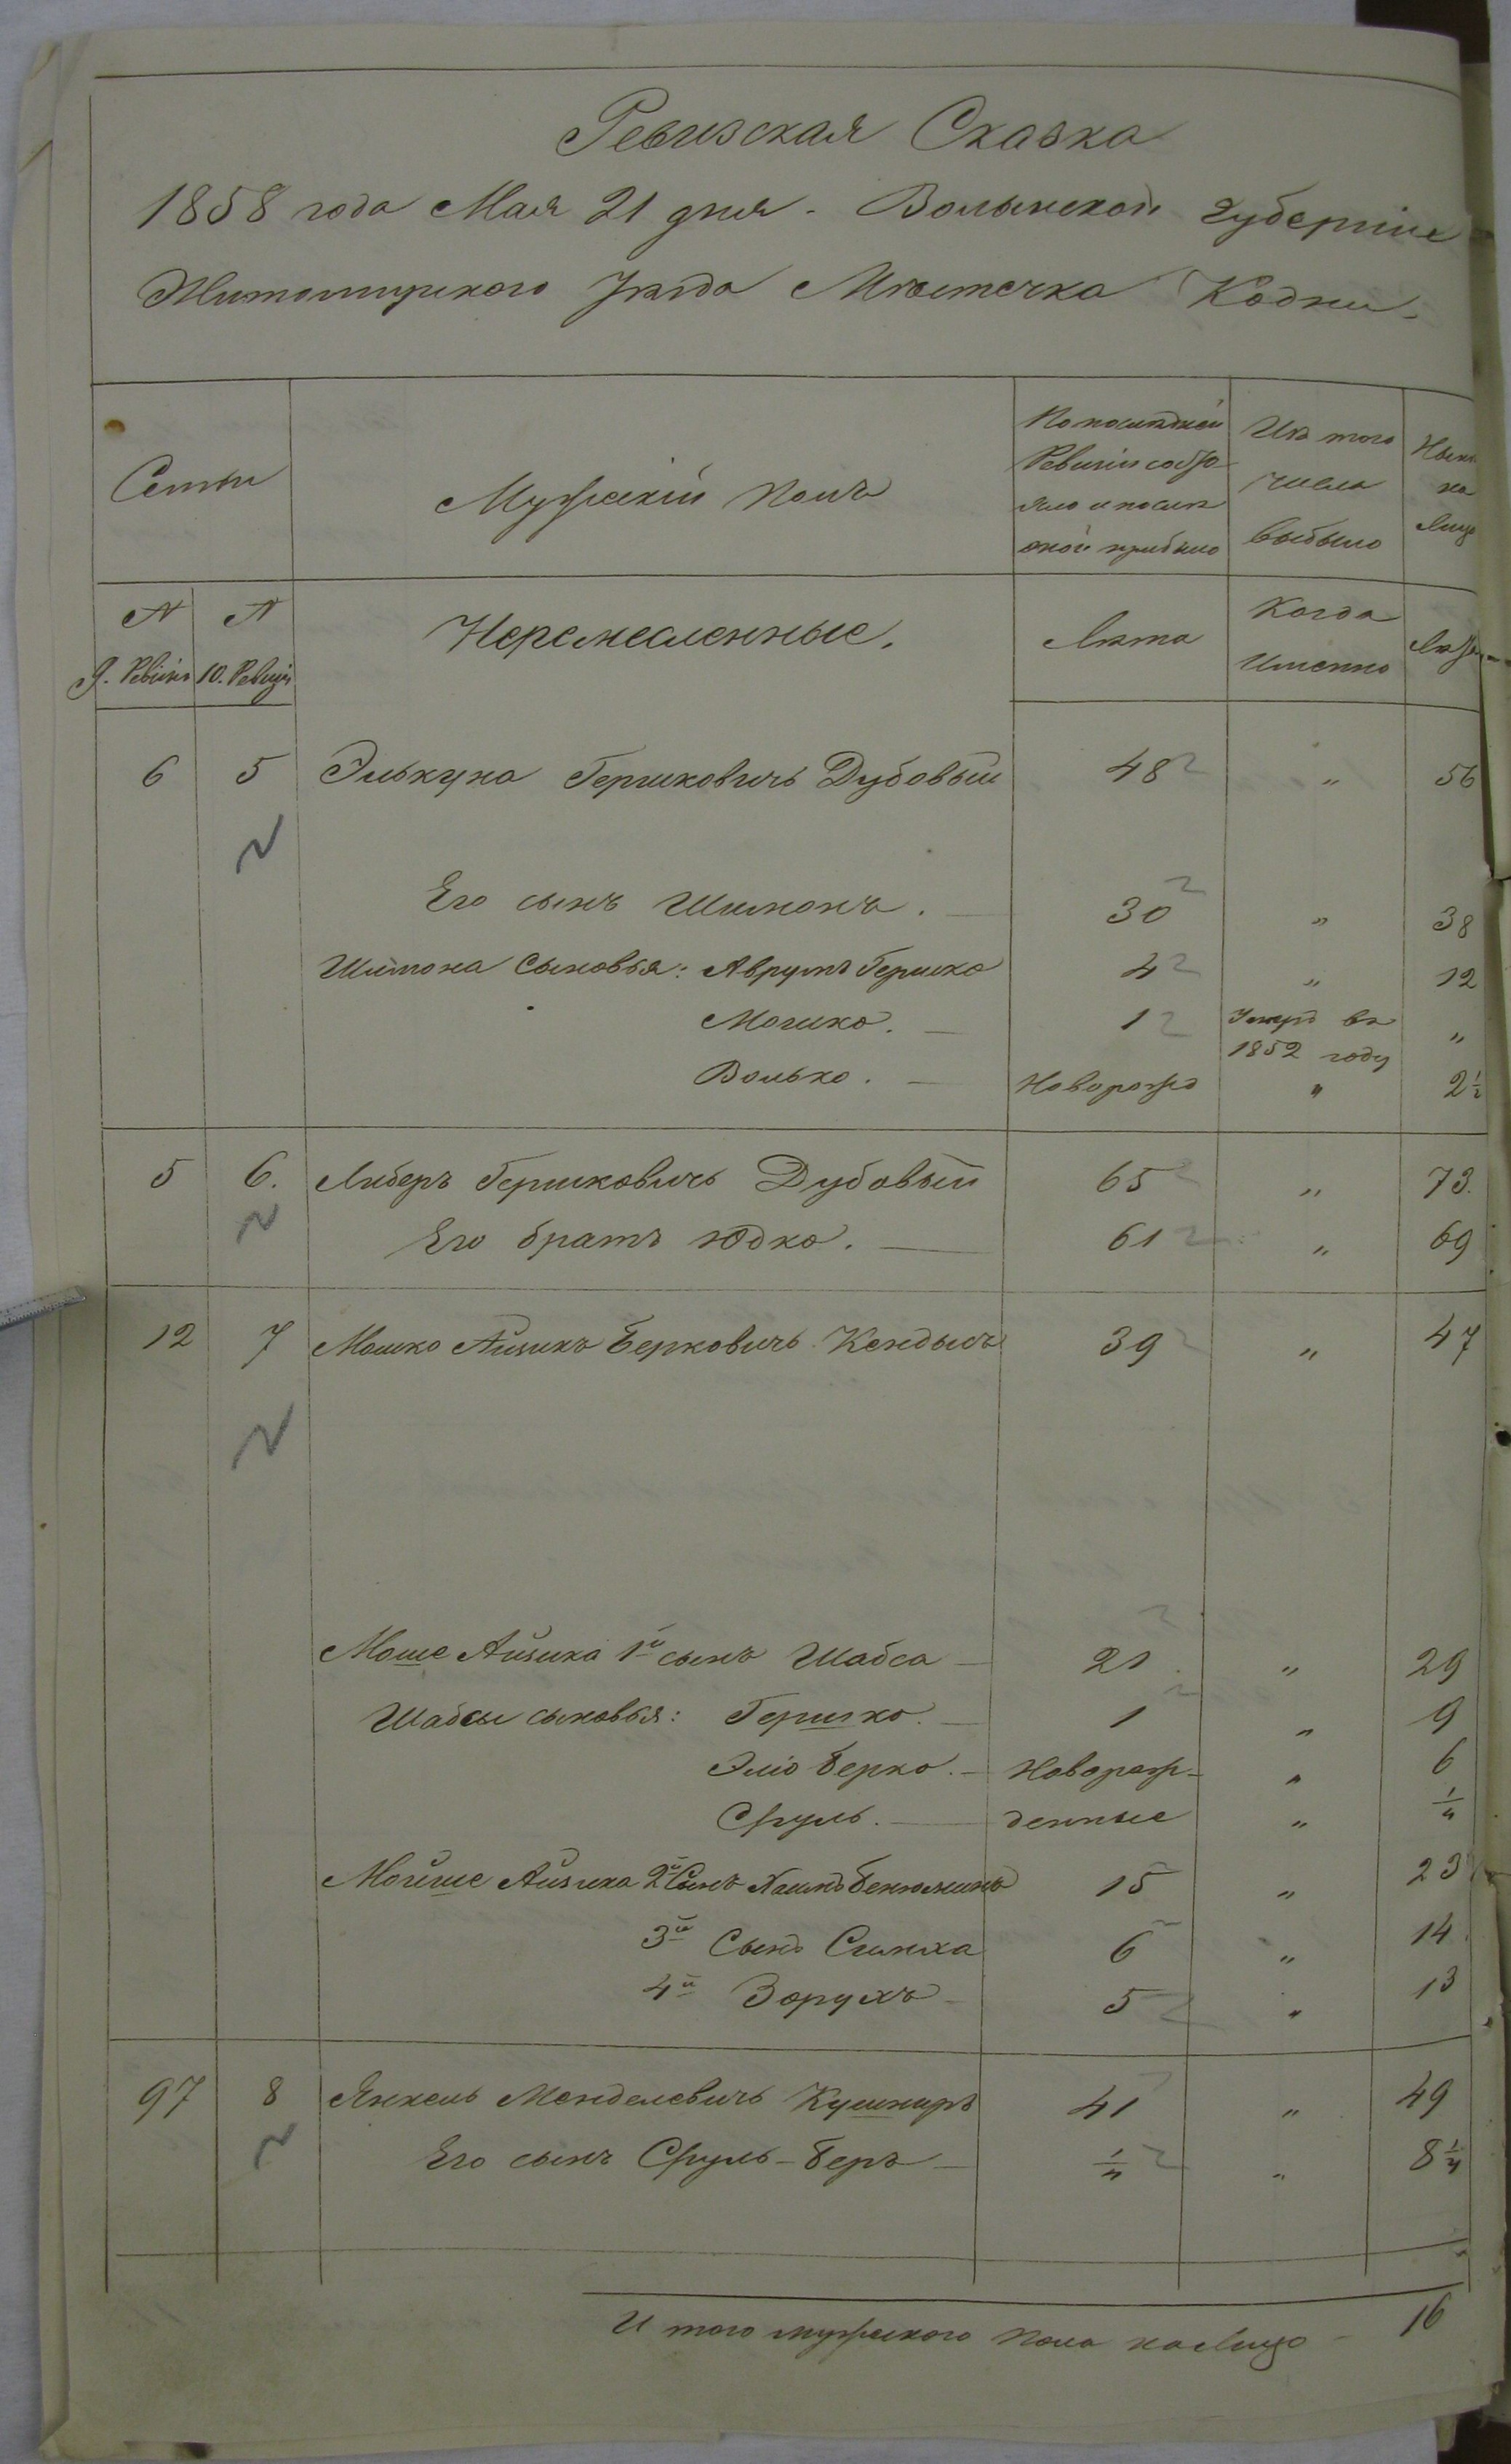 Ревизская Сказка
1858 года Мая 21 дня. Волынской Губернии
Житомирского уѣзда Мѣстечка Кодни.
Семьи
Мужескій полъ
По послѣдней Ревизіи состояло и послѣ оной прибыло
Изъ того числа выбыло
Нынѣ на лицо
№ 9. Ревизіи
№ 10. Ревизіи
Неремесленные.
Лѣта
Когда Именно
Лѣта
6 5 Элькуна Гершковичъ Дубовый 48 „ 56
Его сынъ Шимонъ. — 30 „ 38
Шимона Сыновья: Аврумъ Гершко 4 „ 12
Мошко. — 1 Умеръ въ 1852 году „
Волько. — Новорожд „ 2½
5 6. Либеръ Гершковичъ Дубовый 65 „ 73.
Его братъ Юдко. — 61 „ 69
12 7 Мошко Айзикъ Берковичъ Кендыль 39 „ 47
Моше Айзика 1й сынъ Шабса — 21 „ 29
Шабсы сыновья: Гершко. — 1 „ 9
Эліо Берко. — Новорож- „ 6
Сруль. — денные „ ¼
Мойше Айзика 2й Сынъ Хаимъ Бенюминъ 15 „ 23
3й Сынъ Симха 6 „ 14
4й Борухъ — 5 „ 13
97 8 Янкель Менделевичъ Кушниръ 41 „ 49
Его сынъ Сруль-Беръ — ¼ „ 8¼
И того мужеского пола на лицо — 16